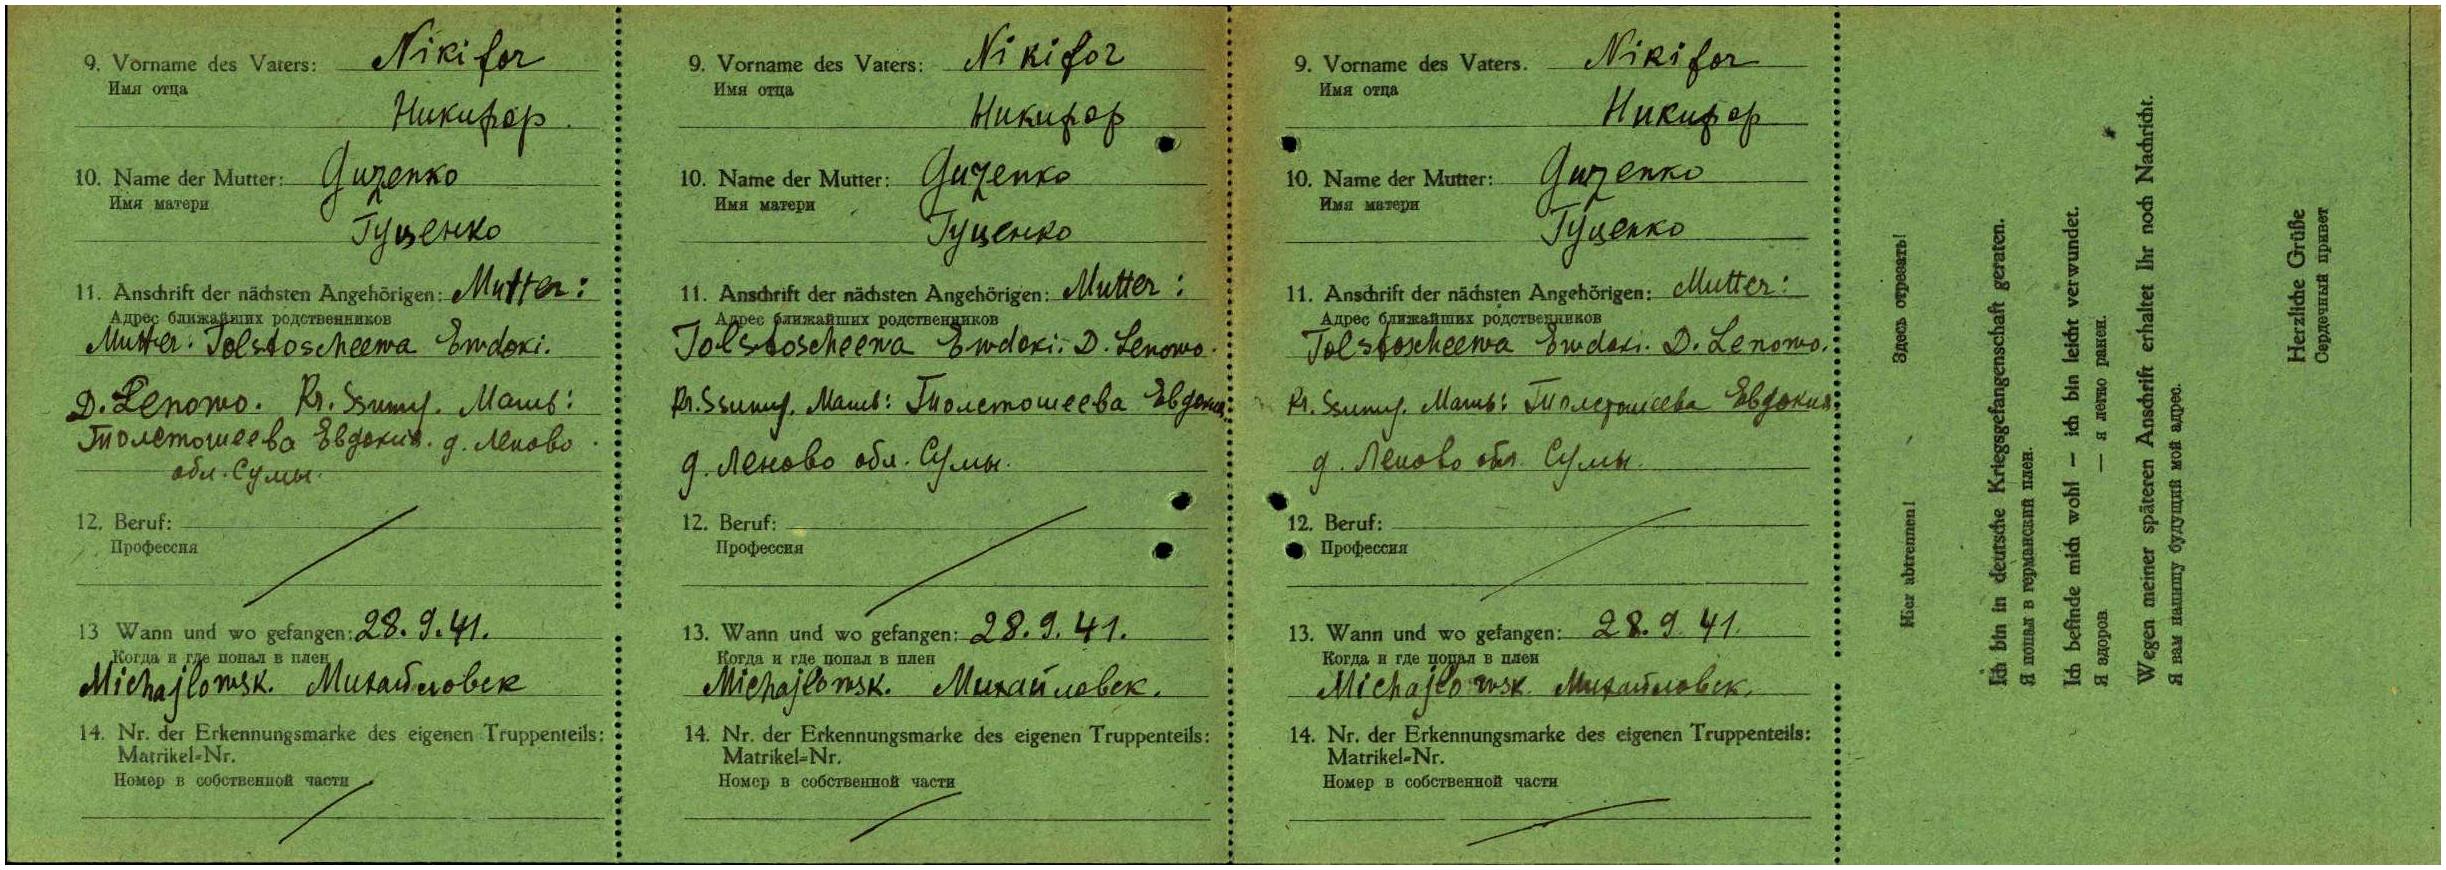 9. Vorname des Vaters: Nikifor
Имя отца
Никифор
10. Name der Mutter: Guzenko
Имя матери
Гуценко
11. Anschrift der nächsten Angehörigen: Mutter:
Адрес ближайших родственников
Mutter: Tolstoscheewa Ewdoki.
D. Lenowo. Kr. Ssumy. Мать:
Толстошеева Евдокия. д. Леново
обл. Сумы.
12. Beruf:
Профессия
13 Wann und wo gefangen: 28.9.41.
Когда и где попал в плен
Michajlowsk. Михайловск
14. Nr. der Erkennungsmarke des eigenen Truppenteils:
Matrikel-Nr.
Номер в собственной части
9. Vorname des Vaters: Nikifor
Имя отца
Никифор
10. Name der Mutter: Guzenko
Имя матери
Гуценко
11. Anschrift der nächsten Angehörigen: Mutter:
Адрес ближайших родственников
Tolstoscheewa Ewdoki. D. Lenowo.
Kr. Ssumy. Мать: Толстошеева Евдокия.
д. Леново обл. Сумы.
12. Beruf:
Профессия
13. Wann und wo gefangen: 28.9.41.
Когда и где попал в плен
Michajlowsk. Михайловск.
14. Nr. der Erkennungsmarke des eigenen Truppenteils:
Matrikel-Nr.
Номер в собственной части
9. Vorname des Vaters. Nikifor
Имя отца
Никифор
10. Name der Mutter: Guzenko
Имя матери
Гуценко
11. Anschrift der nächsten Angehörigen: Mutter:
Адрес ближайших родственников
Tolstoscheewa Ewdoki. D. Lenowo.
Kr. Ssumy. Мать: Толстошеева Евдокия
д. Леново обл. Сумы.
12. Beruf:
Профессия
13. Wann und wo gefangen: 28.9.41.
Когда и где попал в плен
Michajlowsk. Михайловск.
14. Nr. der Erkennungsmarke des eigenen Truppenteils:
Matrikel-Nr.
Номер в собственной части
Hier abtrennen! Здесь отрезать!
Ich bin in deutsche Kriegsgefangenschaft geraten.
Я попал в германский плен.
Ich befinde mich wohl — ich bin leicht verwundet.
Я здоров — я легко ранен.
Wegen meiner späteren Anschrift erhaltet Ihr noch Nachricht.
Я вам напишу будущий мой адрес.
Herzliche Grüße
Сердечный привет